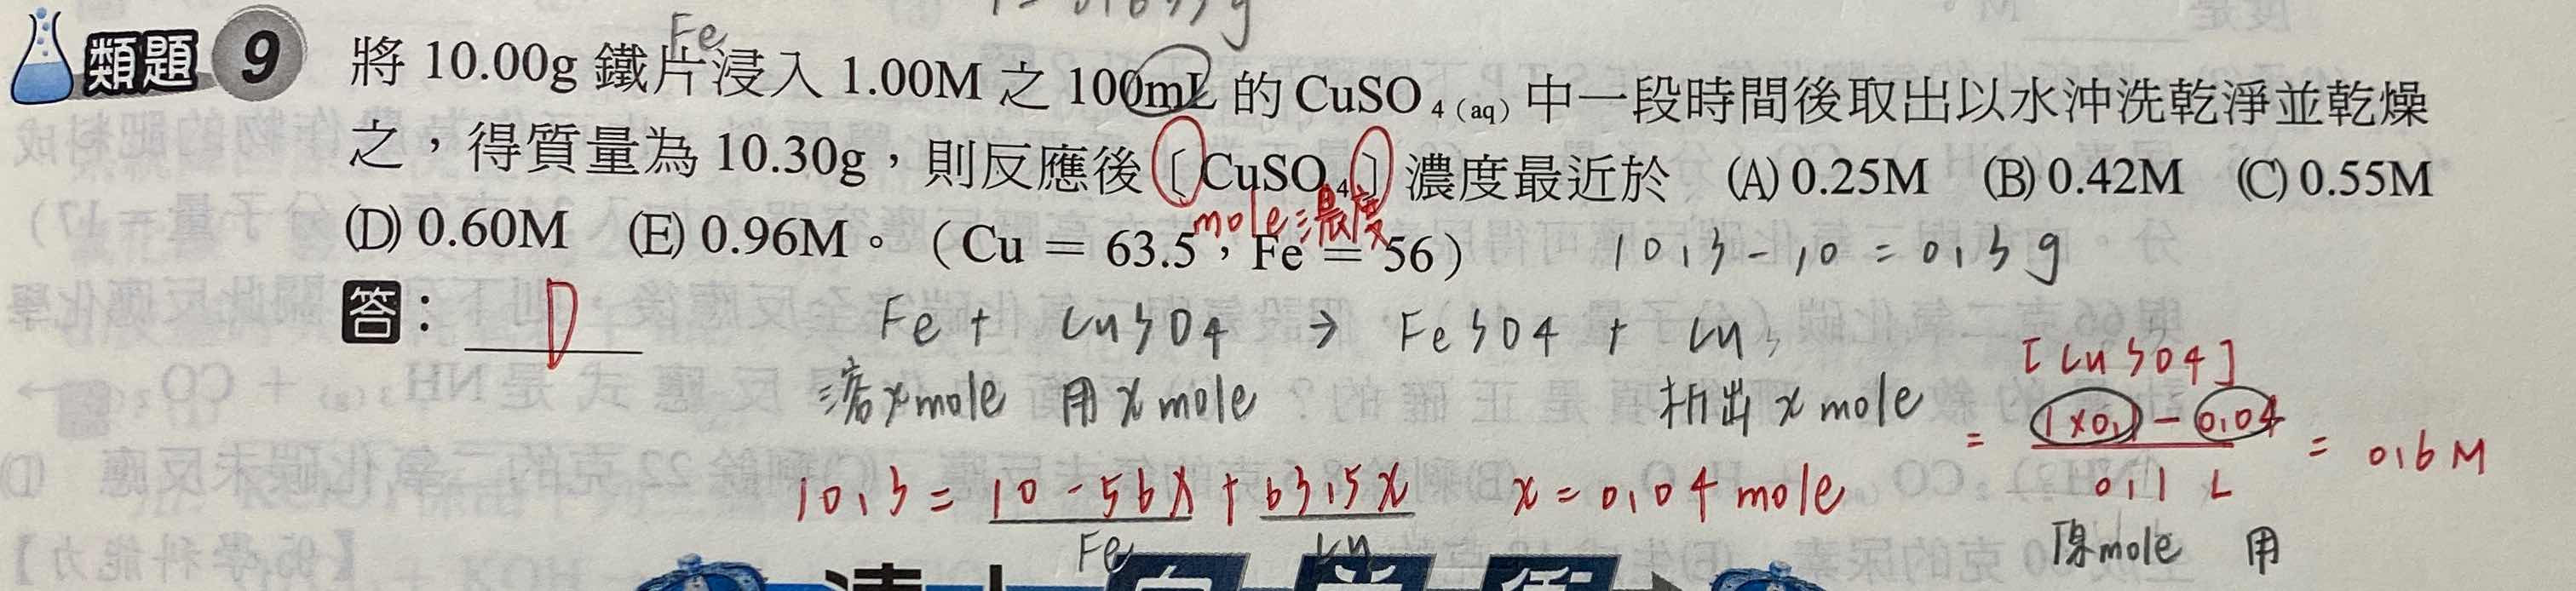 Fe
類題 9 將 10.00g 鐵片浸入 1.00M 之 100mL 的 CuSO4(aq) 中一段時間後取出以水沖洗乾淨並乾燥
之,得質量為 10.30g,則反應後〔CuSO4〕濃度最近於 (A) 0.25M (B) 0.42M (C) 0.55M
mole濃度
(D) 0.60M (E) 0.96M。(Cu = 63.5,Fe = 56)
10.3 - 10 = 0.3 g
答: D
Fe + CuSO4 → FeSO4 + Cu
溶 x mole 用 x mole 析出 x mole
[CuSO4]
= 1×0.1 - 0.04 / 0.1 L = 0.6 M
10.3 = 10 - 56x + 63.5x x = 0.04 mole
Fe Cu
原mole 用